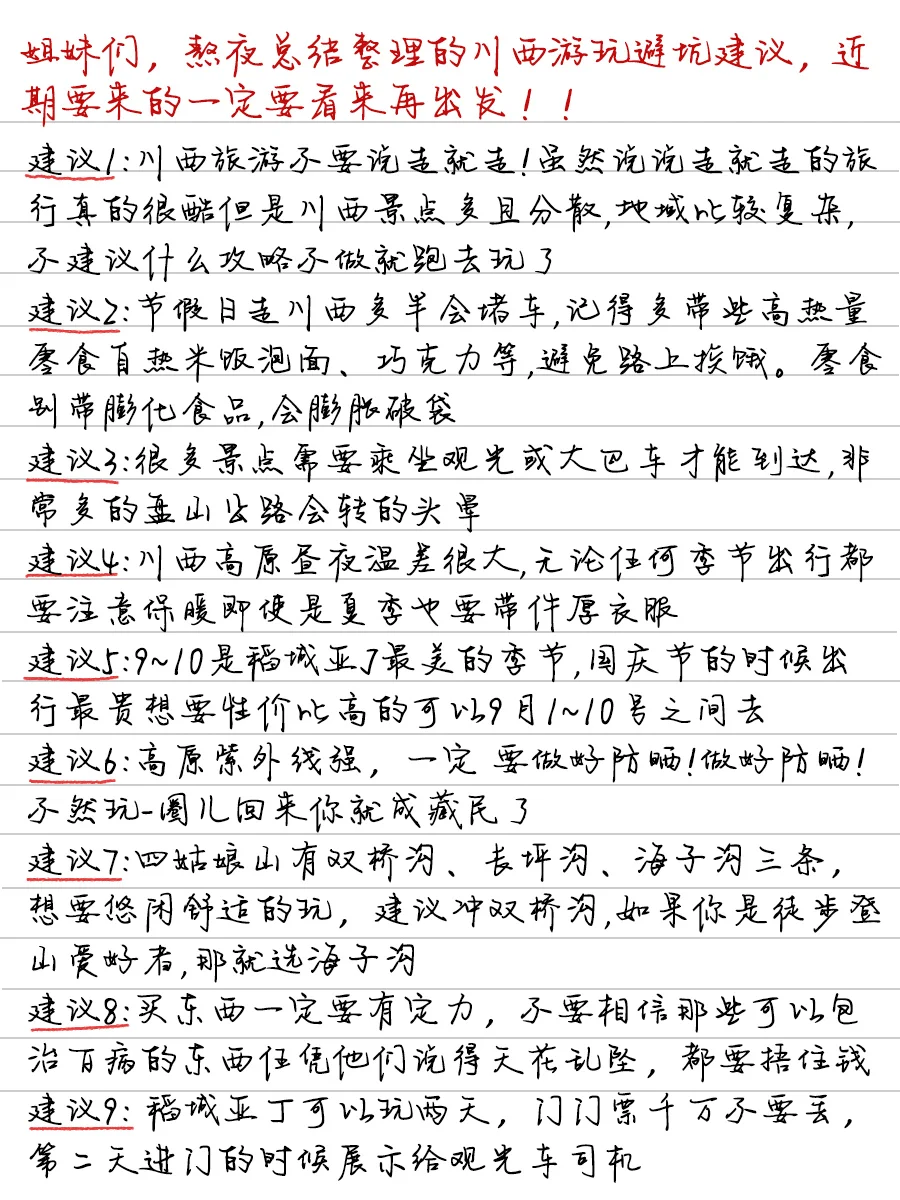 姐妹们，熬夜总结整理的川西游玩避坑建议，近
期要来的一定要看来再出发！！
建议1:川西旅游不要说走就走!虽然说说走就走的旅
行真的很酷但是川西景点多且分散,地域比较复杂,
不建议什么攻略不做就跑去玩了
建议2:节假日走川西多半会堵车,记得多带些高热量
零食自热米饭泡面、巧克力等,避免路上挨饿。零食
别带膨化食品,会膨胀破袋
建议3:很多景点需要乘坐观光或大巴车才能到达,非
常多的盘山公路会转的头晕
建议4:川西高原昼夜温差很大,无论任何季节出行都
要注意保暖即使是夏季也要带件厚衣服
建议5:9~10是稻城亚丁最美的季节,国庆节的时候出
行最贵想要性价比高的可以9月1~10号之间去
建议6:高原紫外线强，一定要做好防晒!做好防晒!
不然玩一圈儿回来你就成藏民了
建议7:四姑娘山有双桥沟、长坪沟、海子沟三条，
想要悠闲舒适的玩，建议冲双桥沟,如果你是徒步登
山爱好者,那就选海子沟
建议8:买东西一定要有定力，不要相信那些可以包
治百病的东西任凭他们说得天花乱坠，都要捂住钱
建议9:稻城亚丁可以玩两天，门门票千万不要丢，
第二天进门的时候展示给观光车司机